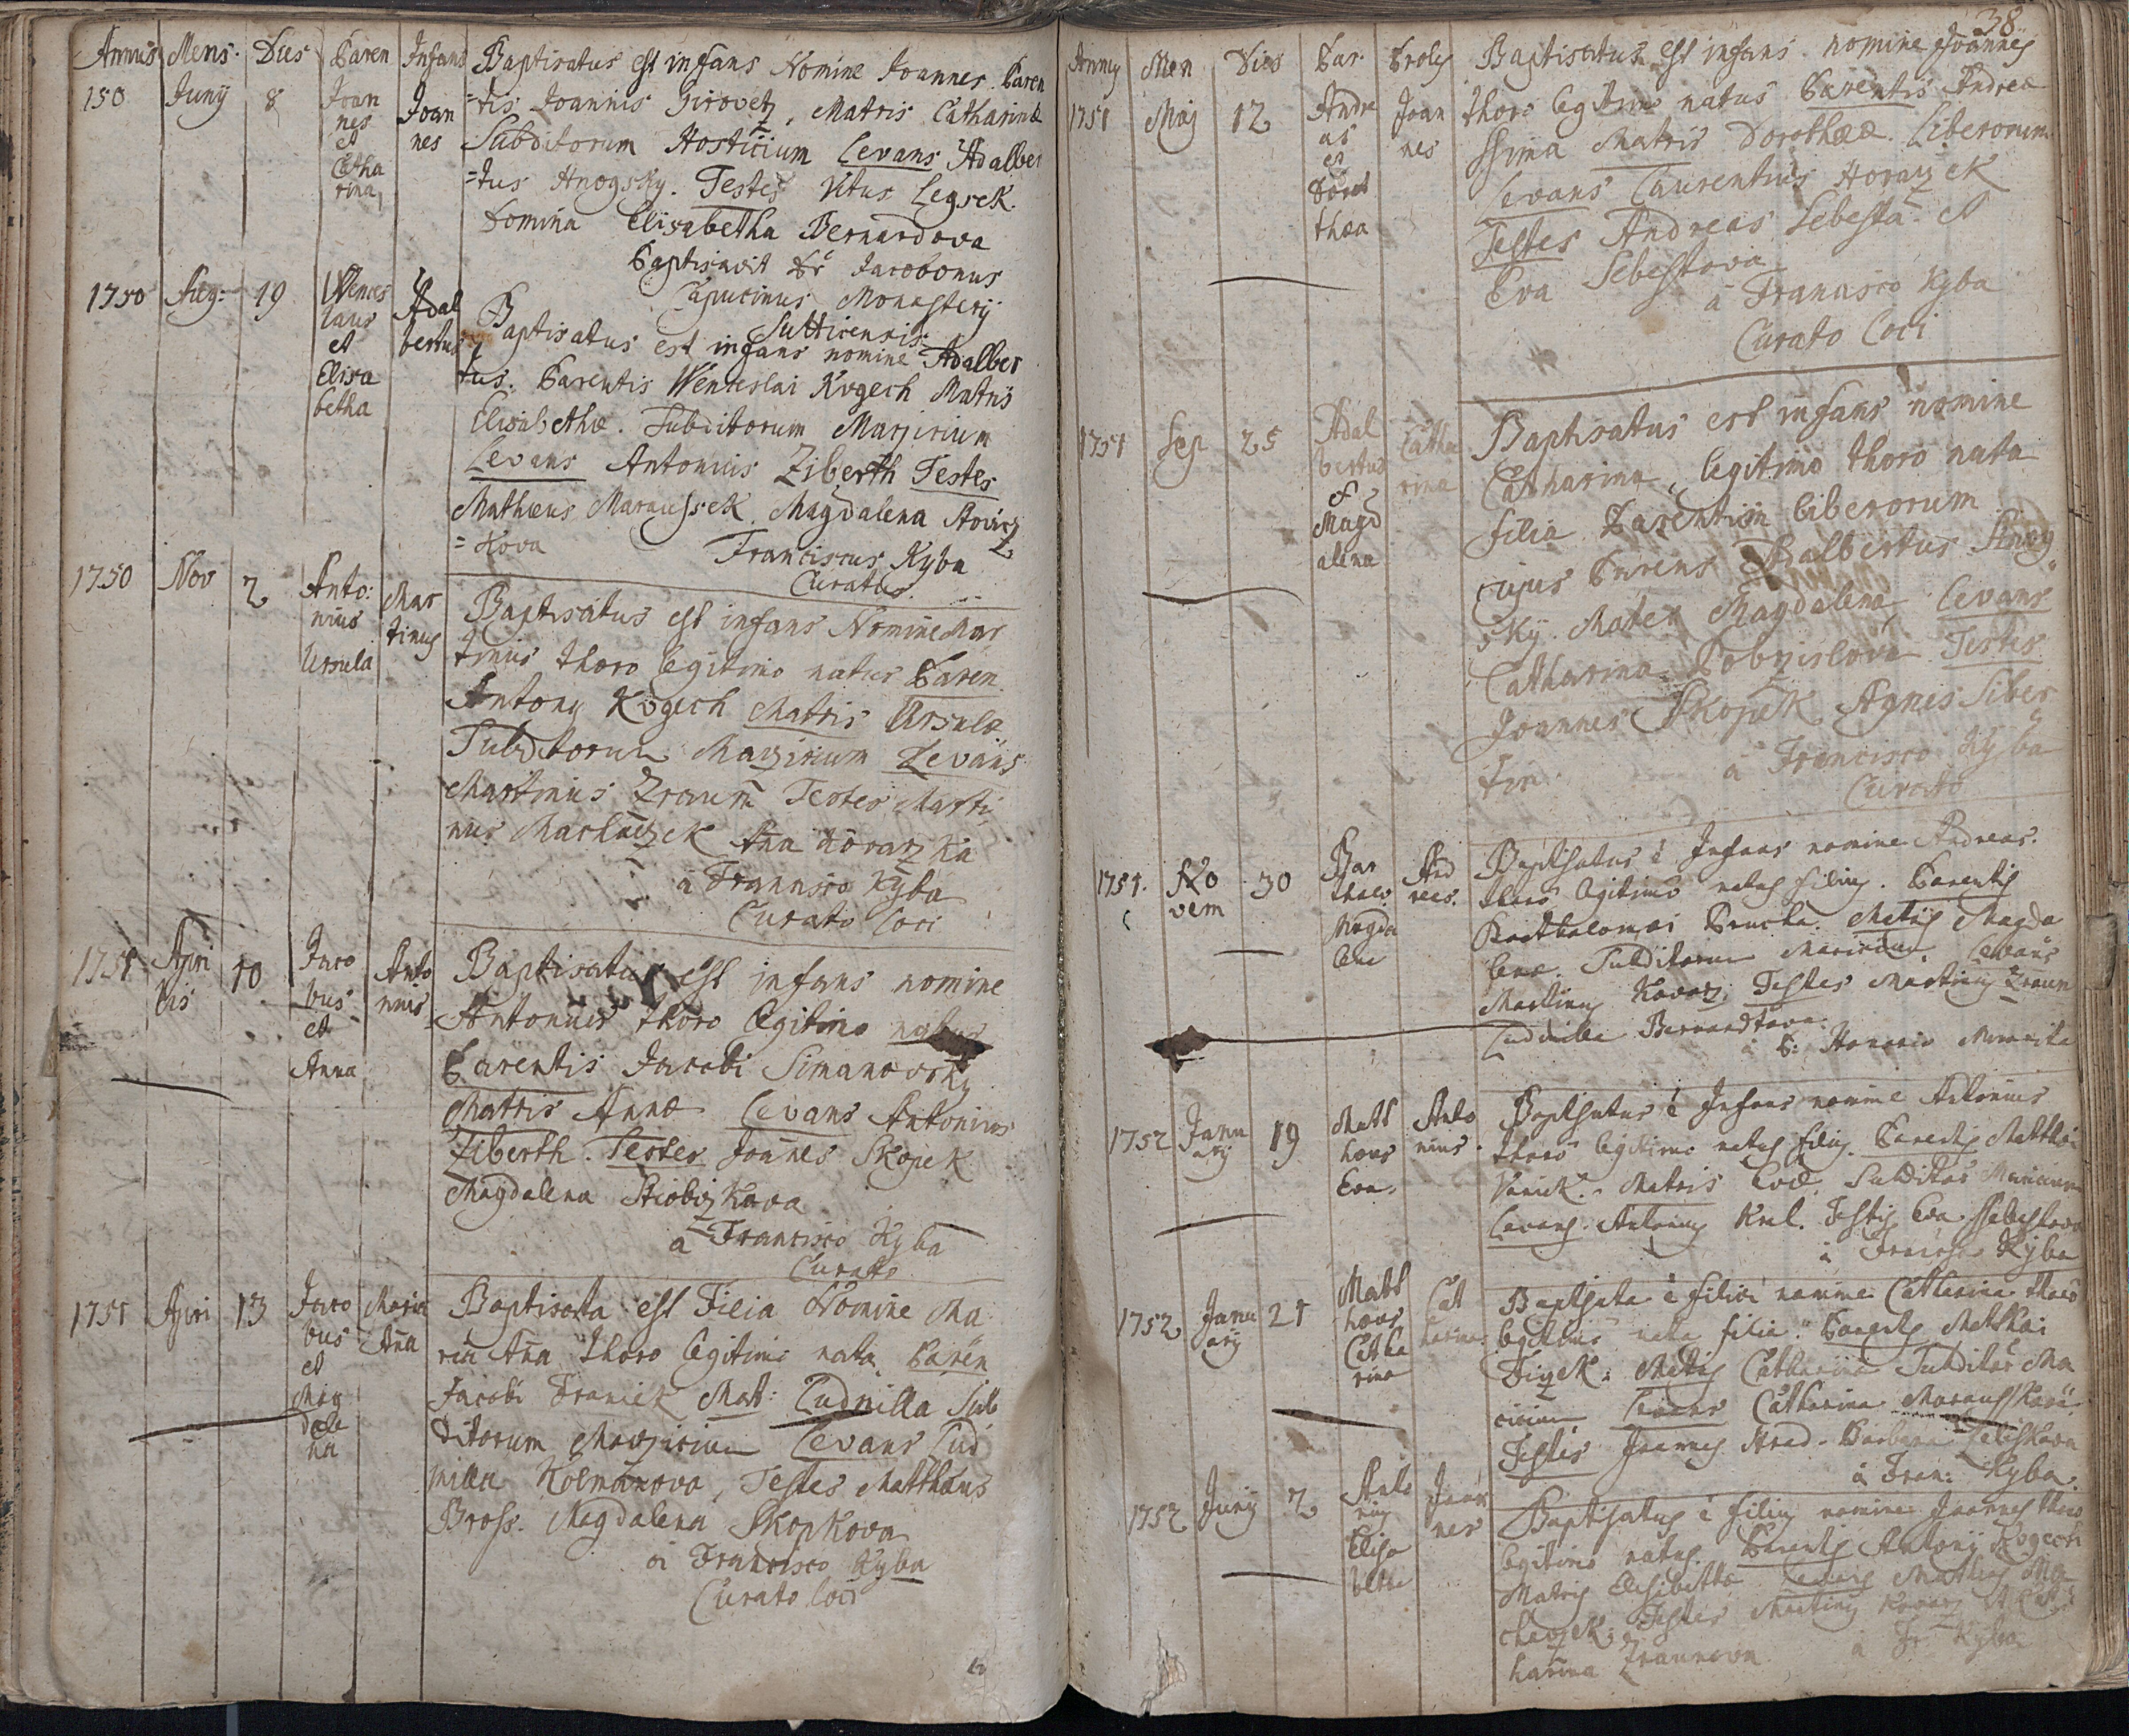 Annus Mens. Dies Paren Infans
150 Junij 8
Joan
nes
et
Catha
rina
Joan
nes
Baptisatus est infans Nomine Joannes. Paren
=tis Joannis Girovetz, Matris Catharinæ
Subditorum Hosticium Levans Adalber
=tus Hnogsky. Testes Vitus Legsek.
Domina Elisabetha Bernardova
Baptisavit Fr Jacobonus
Capucinus Monasterij
Sutticensis.
1750 Aug: 19
Wences
laus
et
Elisa
betha
Adal
bertus
Baptisatus est infans nomine Adalber
tus. Parentis Wenceslai Kogech Matris
Elisabethæ. Subditorum Marzicium
Levans Antonius Ziberth Testes
Mathæus Maraussek. Magdalena
=kova Franciscus Kyba
Curatus.
1750 Nov 2
Anto:
nius
Ursula
Mar
tinus
Baptisatus est infans Nomine Mar
tinus thoro legitimo natus Paren
Antony Kogech Matris Ursulæ
Subditorum Marzicium Levans
Martinus Zraum Testes Marti
nus Machaczek Anna Kovarzka
à Francisco Kyba
Curato Loci
1751 Apri
lis 10
Jaco
bus
et
Anna
Anto
nius
Baptisatus est infans nomine
Antonius thoro legitimo natus
Parentis Jacobi Simanovsky
Matris Annæ Levans Antonius
Ziberth. Testes Joannes Skopek
Magdalena
à Francisco Kyba
Curato
1751 Apri 13
Jaco
bus
et
Mag
dale
na
Maria
Anna
Baptisata est Filia Nomine Ma
ria Anna thoro legitimo nata Paren
Jacobi Franiek Mat: Ludmilla Sub
ditorum Marzicium Levans Lud
milla Kolmanova, Testes Matthæus
Bross. Magdalena Skopkova
à Francisco Kyba
Curato Loci
38
Annus Men Dies Par. Proles
1751 Maj 12
Andre
as
et
Doro
thæa
Joan
nes
Baptisatus est infans nomine Joannes
thoro legitimo natus Parentis Andreæ
Ssima Matris Dorothææ. Liberorum
Levans Laurentius Horazek
Testes Andreas Sebesta et
Eva Sebestova
à Francisco Kyba
Curato Loci
1751 Sep 25
Adal
bertus
et
Magd
alena
Catha
rina
Baptisatus est infans nomine
Catharina, legitimo thoro nata
filia Parentum liberorum
cujus Parens Adalbertus Hnog
sky. Mater Magdalena Levans
Catharina Testes
Joannes Skopek Agnes Siber
tin. à Francisco Kyba
Curato
1751. No
vem 30
Bar
thalo.
Magda
lena
And
reas.
Baptisatus e Infans nomine Andreas.
thoro legitimo natus filius. Parentis
Barthalomæi Matris Magda
lenæ. Subditorum Maricium. Levans
Martinus Kovarz. Testes Martinus Zraum
Ludmilla Bernardtova.
à P: Honorio Minorita
1752 Janu
arij 19
Matt
hæus
Eva.
Anto
nius.
Baptisatus e Infans nomine Antonius
thoro legitimo natus filius. Parentis Matthæi
Matris Evæ. Subditor Maricium
Levans. Antonius Kral. Testis Eva Ssebestova
à Francisco Kyba
1752 Janu
arij 21
Matt
hæus
Catha
rina
Cat
harina
Baptisata e filia nomine Catharina thoro
legitimo nata filia. Parentis Matthæi
Matris Catharina Subditor Ma
ricium Levans Catharina Maraussková.
Testes Joannes Hrad. Barbara
à Fran: Kyba.
1752 Junij 2
Anto
nius
Elisa
betha
Joan
nes
Baptisatus e filius nomine Joannes thoro
legitimo natus. Parentis Antonij Kogech
Matris Elisabetha Levans Matheus Ma
chaczek. Testes Martinus Kovarz et Cat
harina Zraumova à Fr Kyba